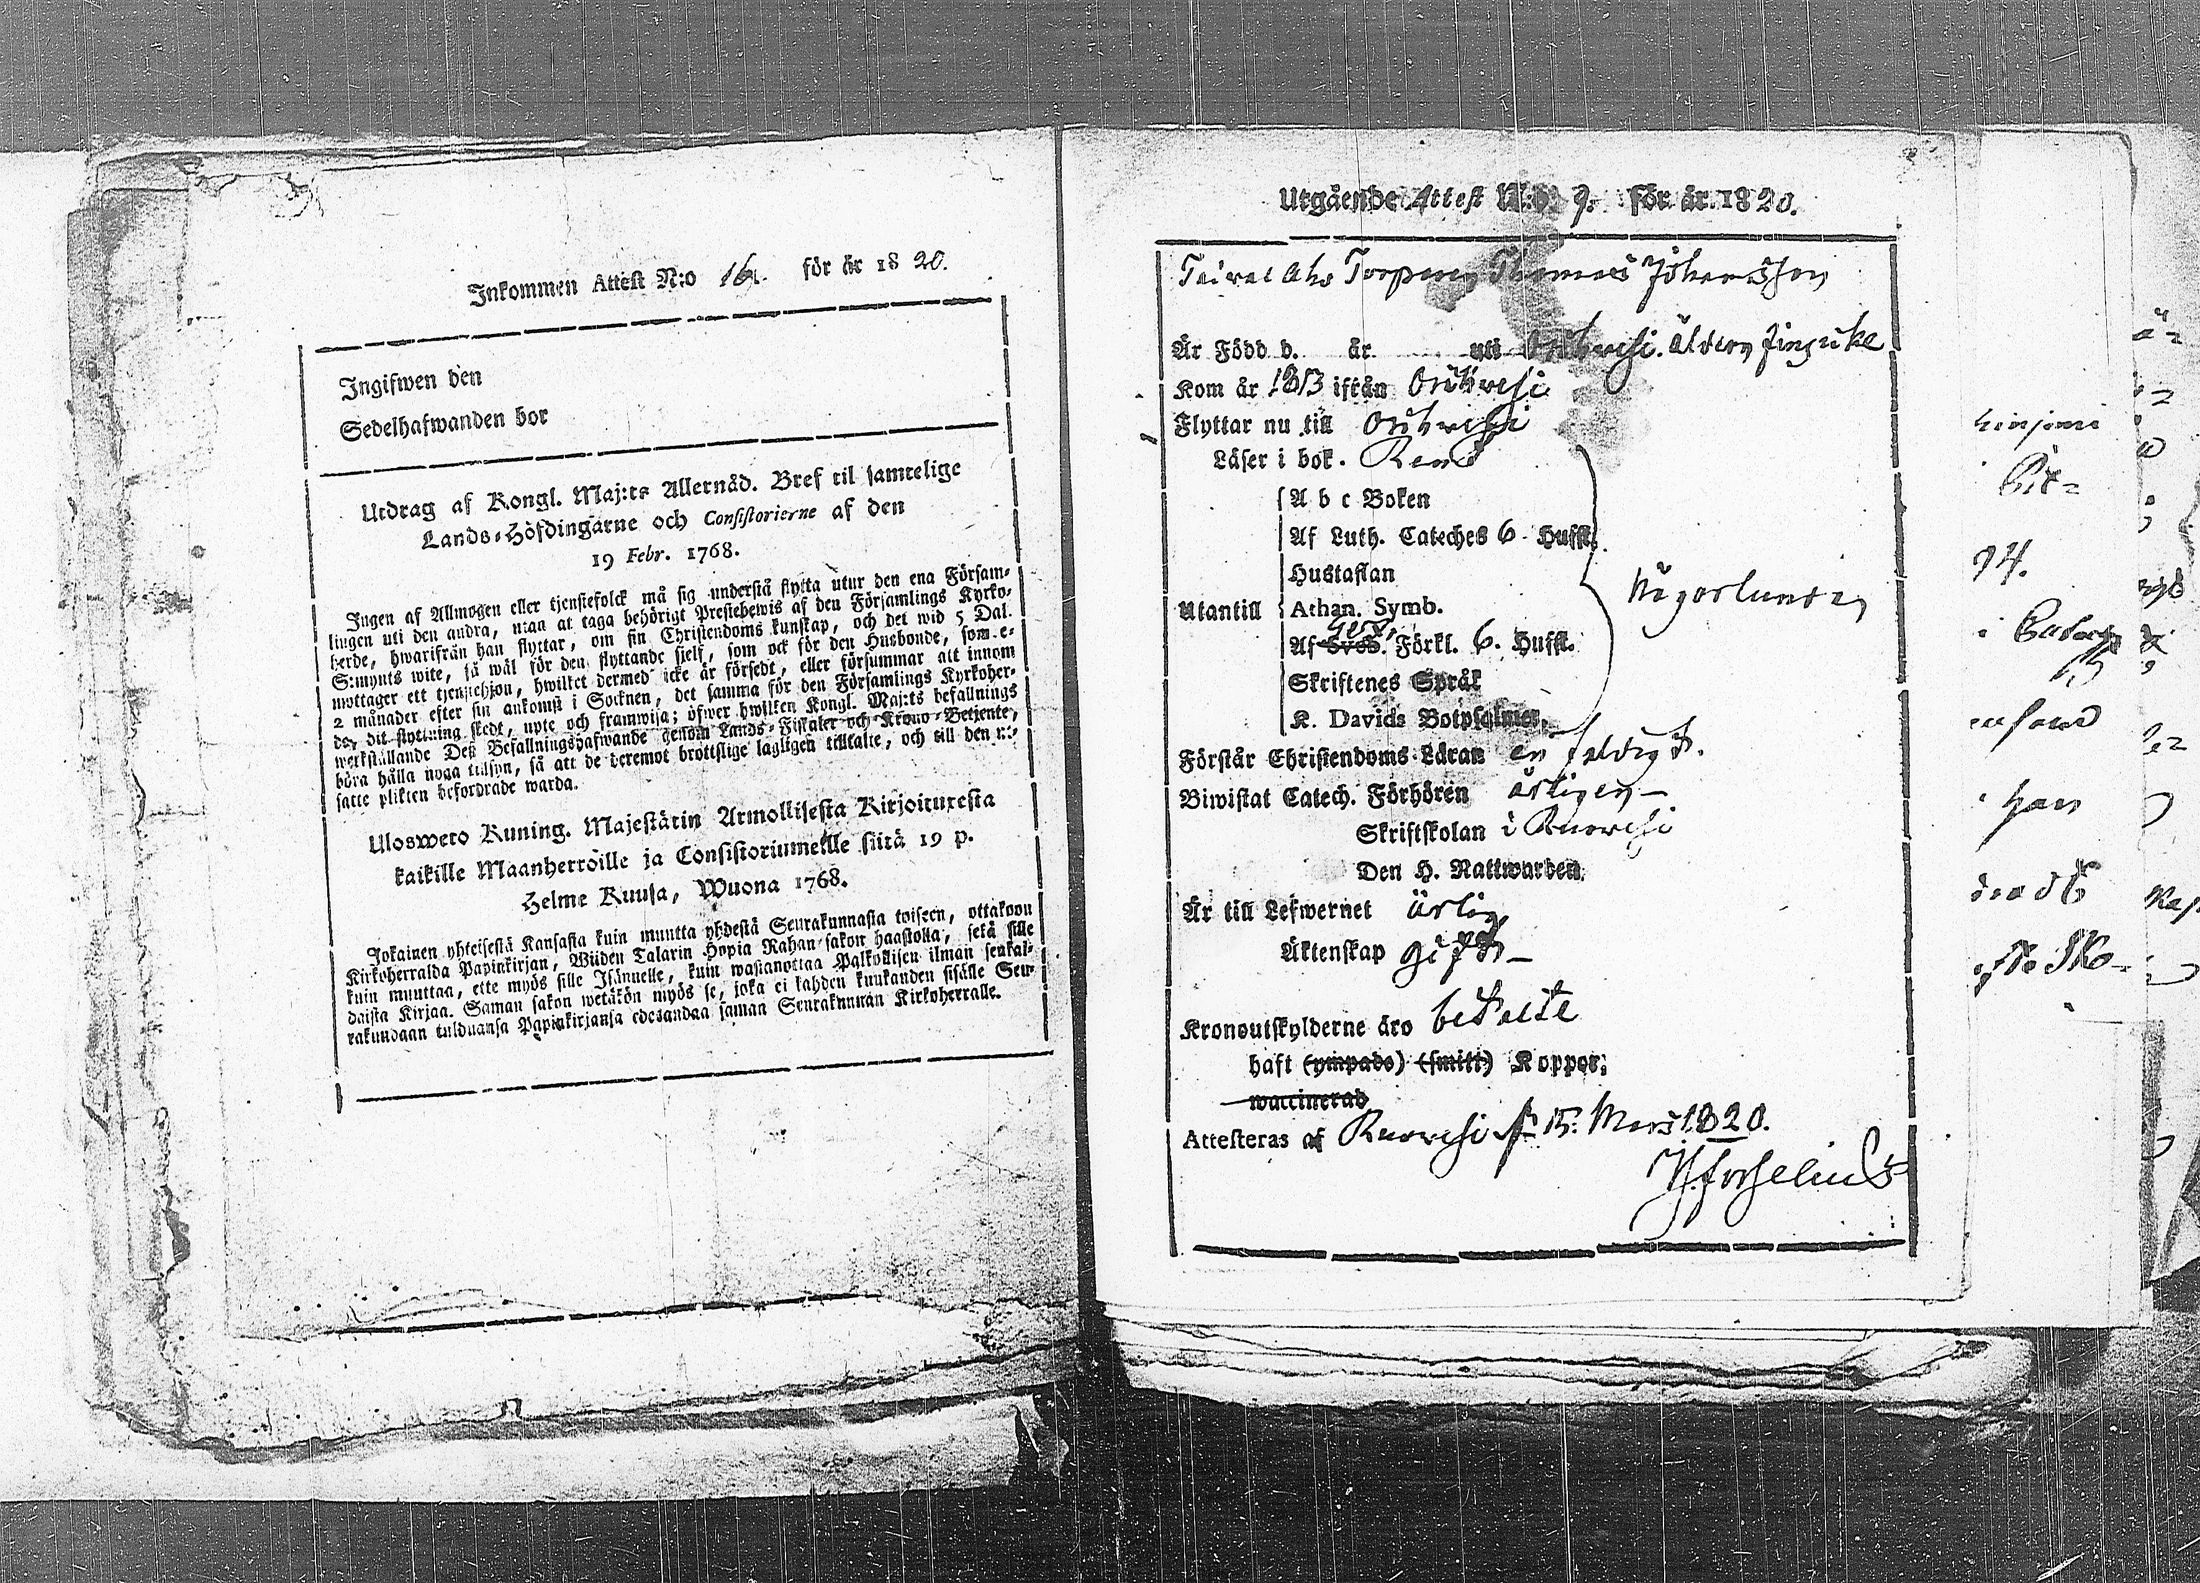 Inkommen Attest N:o 16. för år 1820.
Ingifwen den
Sedelhafwanden bor
Utdrag af Kongl. Maj:ts Allernåd. Bref til samtelige
Lands-Höfdingarne och Consistorierne af den
19 Febr. 1768.
Ingen af Allmogen eller tjenstefolck må sig understå flytta utur den ena Försam-
lingen uti den andra, utan at taga behörigt Prestebewis af den Församlings Kyrko-
herde, hwarifrån han flyttar, om sin Christendoms kunskap, och det wid 5 Dal.
S:mynts wite, så wäl för den flyttande sielf, som ock för den Husbonde, som e-
mottager ett tjenstehjon, hwilket dermed icke är försedt, eller försummar att innom
2 månader efter sin ankomst i Socknen, det samma för den Församlings Kyrkoher-
de, dit flyttning skedt, upte och framwisa; öfwer hwilken Kongl. Maj:ts befallnings
werkställande Deß Befallningshafwande genom Lands-Fiskaler och Krono-Betjente,
böra hålla noga tillsyn, så att de deremot brottslige lagligen tilltalte, och till den ut-
satte plikten befordrade warda.
Ulosweto Kuning. Majestätin Armollisesta Kirjoituxesta
kaikille Maanherroille ja Consistoriumeille siitä 19 p.
Helme Kuusa, Wuona 1768.
Jokainen yhteisestä Kansasta kuin muutta yhdestä Seurakunnasta toiseen, ottakoon
Kirkoherralda Papinkirjan, Wiiden Talarin Hopia Rahan sakon haastolla, sekä sille
kuin muuttaa, ette myös sille Isännelle, kuin wastanottaa Palkollisen ilman senkal-
daista Kirjaa. Saman sakon wetäkön myös se, joka ei kahden kuukauden sisälle Seu-
rakundaan tulduansa Papinkirjansa edesandaa saman Seurakunnan Kirkoherralle.
Utgående Attest N:o 9. för år 1820.
Torparen Thomas Johansson
Är Född d. år uti Orihvesi. åldern
Kom år 1813 ifrån Orihvesi
Flyttar nu till Orihvesi
Läser i bok. Rent
A b c Boken
Af Luth. Cateches 6 Hufst.
Hustaflan
Utantill Athan. Symb. någorlunda
Af Sveb. Förkl. 6. Hufst.
Skriftenes Språk
K. Davids Botpsalmer.
Förstår Christendoms Läran enfaldigt.
Biwistat Catech. Förhören årligen
Skriftskolan i Ruovesi
Den H. Nattwarden
Är till Lefwernet ärlig
Äktenskap gift
Kronoutskylderne äro betalte
haft (ympade) (smitt) Koppor;
waccinerad
Attesteras af Ruovesi d. 15. Mars 1820.